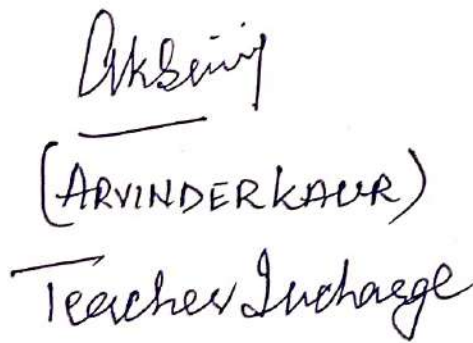 (ARVINDER KAUR)
Teacher Incharge